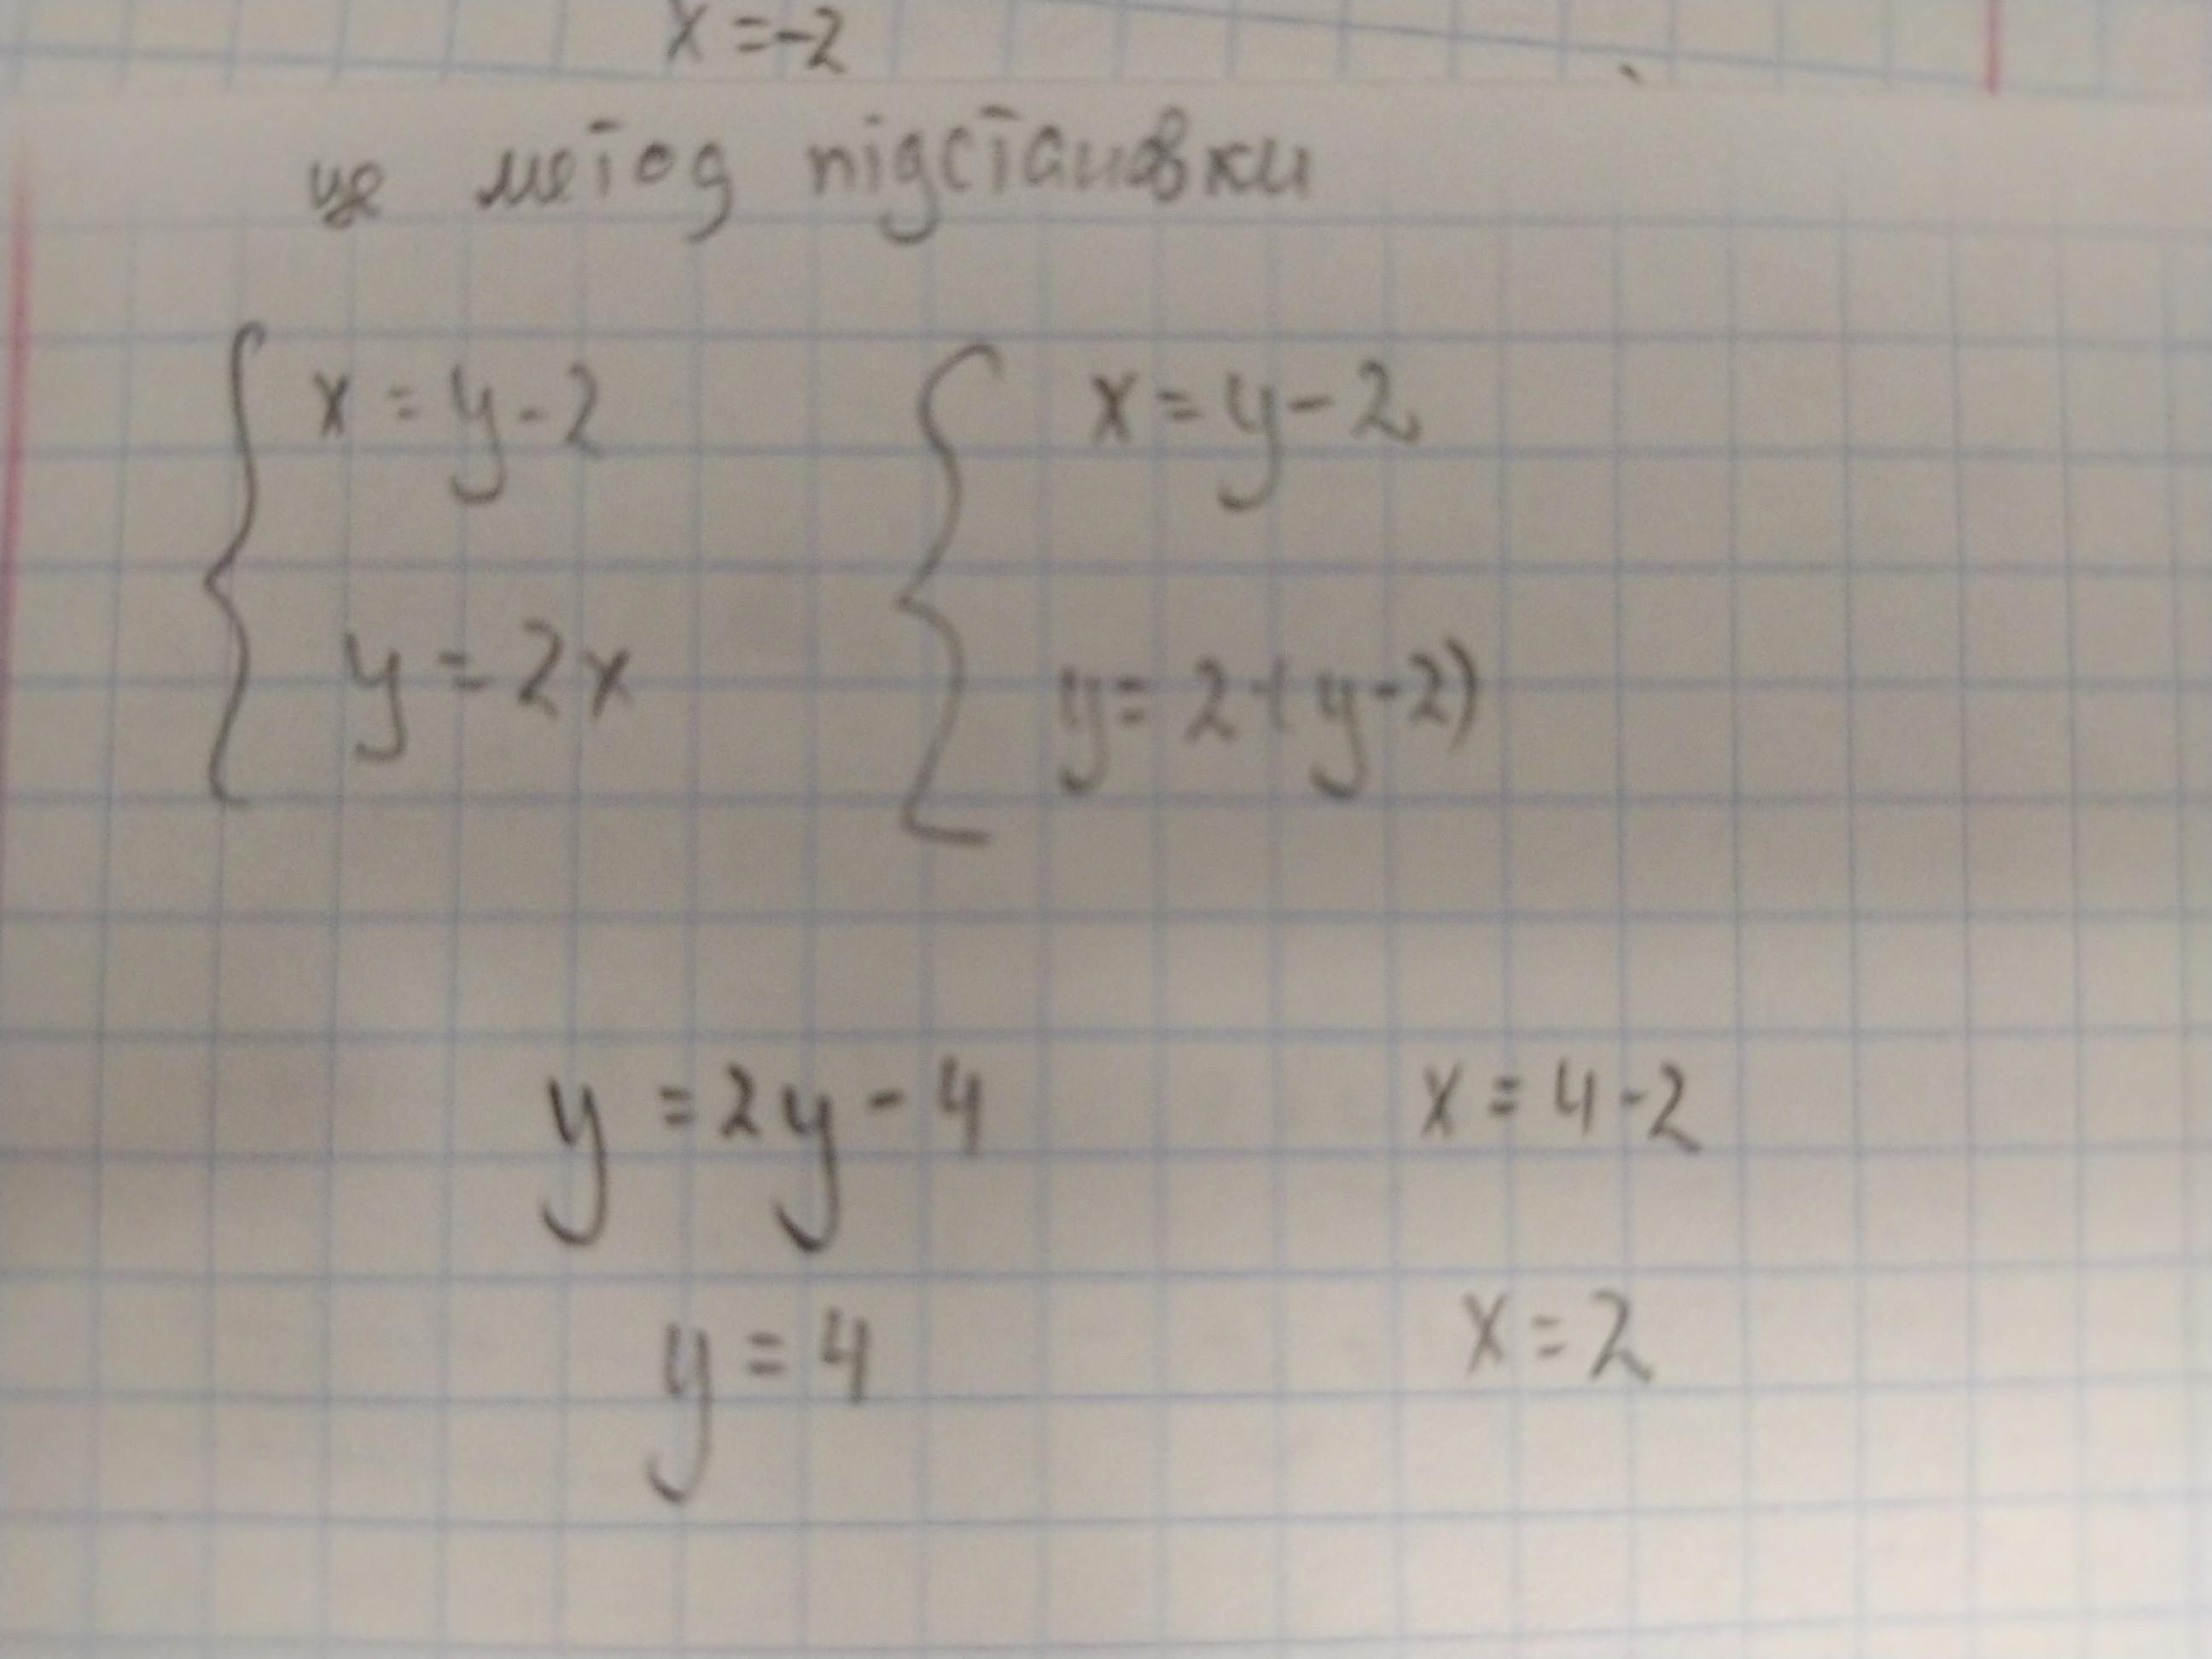 x = -2
це метод підстановки
x = y - 2
y = 2x
x = y - 2
y = 2 · (y - 2)
y = 2y - 4
y = 4
x = 4 - 2
x = 2